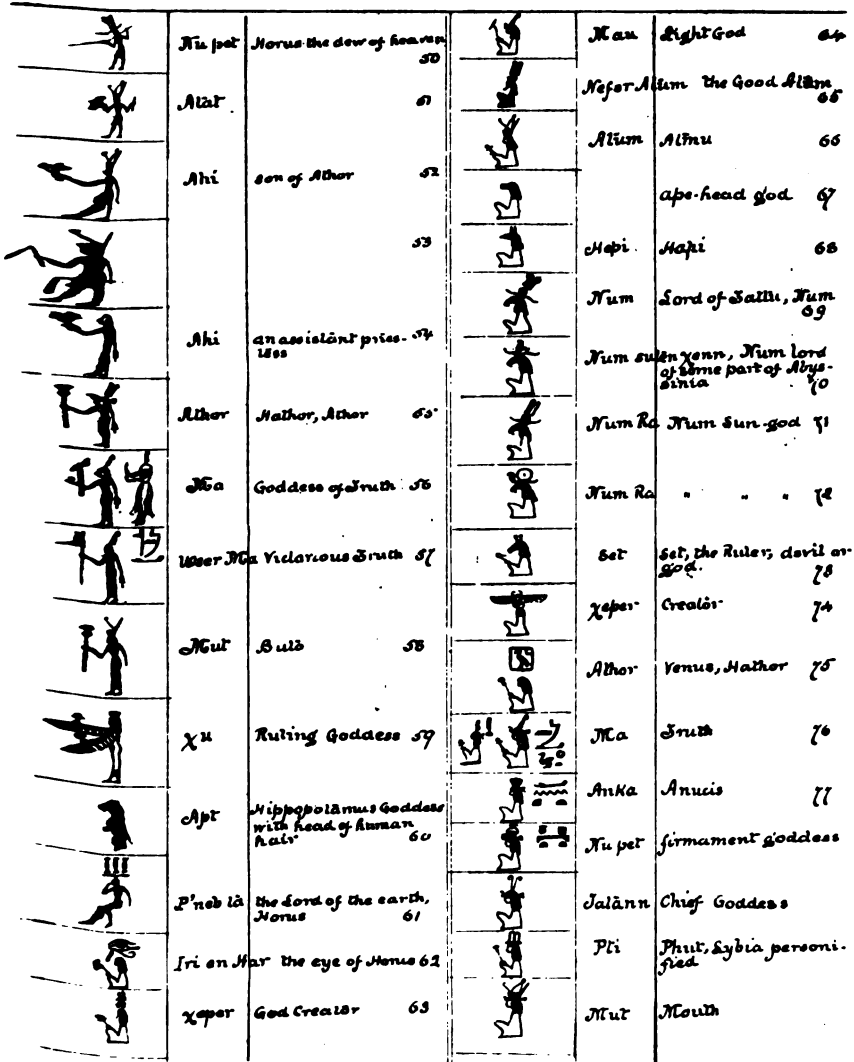 Nu pet Horus the dew of heaven
50
Atat 51
Ahi son of Athor 52
53
Ahi an assistant pries- 54
tess
Athor Hathor, Athor 55
Ma Goddess of Truth 56
User Ma Victorious Truth 57
Mut Buto 58
χu Ruling Goddess 59
Apt Hippopotamus Goddess
with head of human
hair 60
P'neb ta the Lord of the earth,
Horus 61
Iri en Har the eye of Horus 62
χeper God Creator 63
Mau Light God 64
Nefer Atum the Good Atum
65
Atum Atmu 66
ape-head god 67
Hepi Hapi 68
Num Lord of Sattu, Num
69
Num suten χenn, Num lord
of some part of Abys-
sinia 70
Num Ra Num Sun-god 71
Num Ra " " " 72
Set Set, the Ruler, devil or
god. 73
χeper Creator 74
Athor Venus, Hathor 75
Ma Truth 76
Anka Anucis 77
Nu pet firmament goddess
Tatann Chief Goddess
Pti Phut, Lybia personi-
fied
Mut Mouth